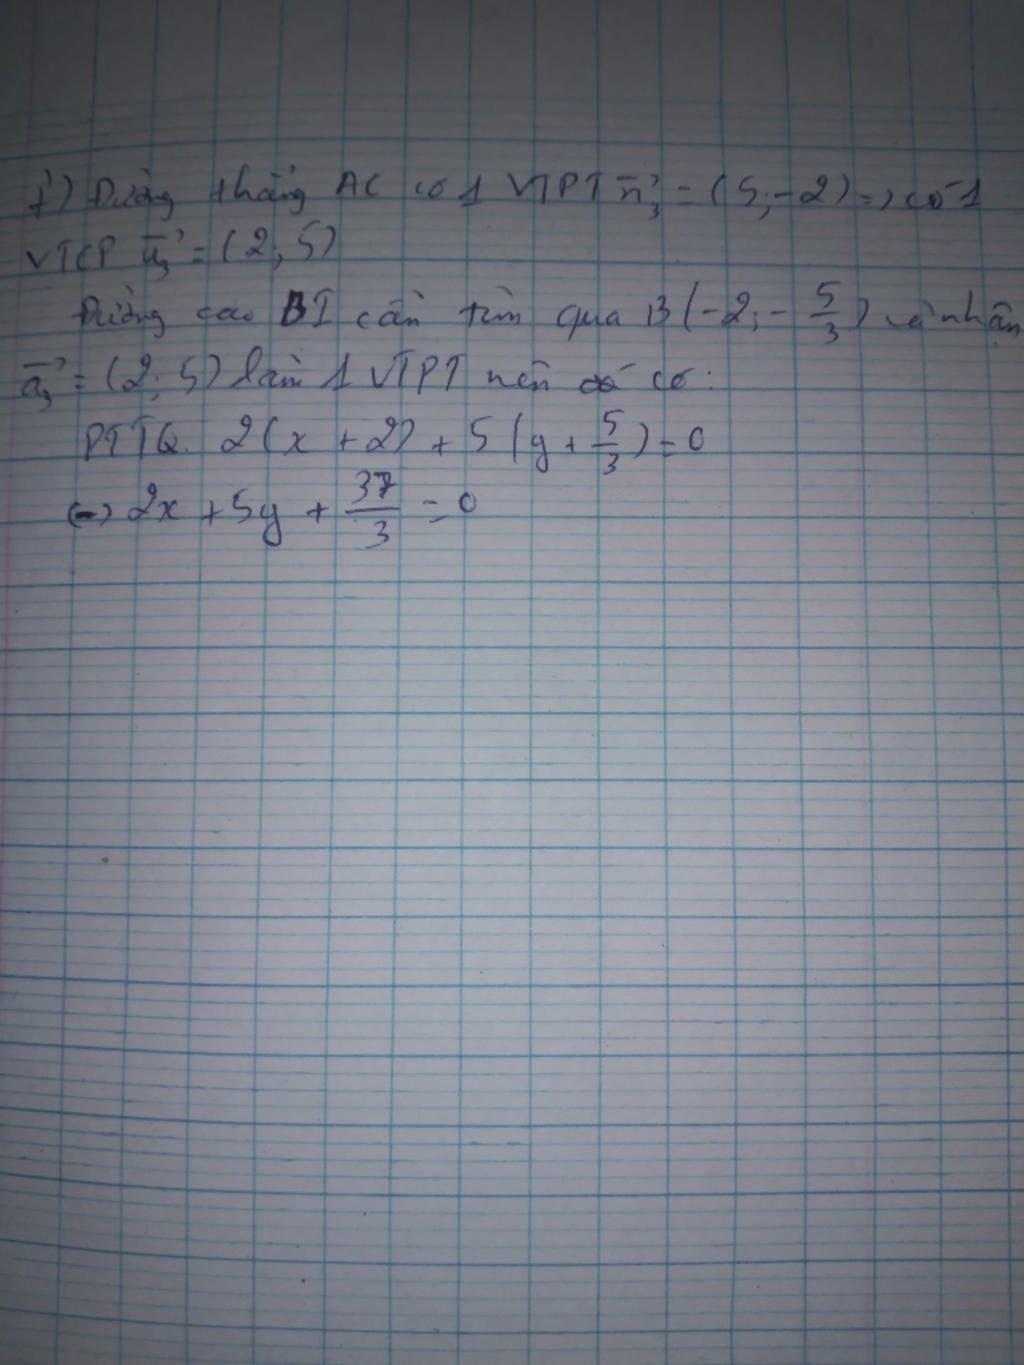 f) Đường thẳng AC có 1 VTPT n₃ = (5;-2) => có 1
VTCP u₃ = (2; 5)
Đường cao BI cần tìm qua B(-2; -5/3) và nhận
u₃ = (2; 5) làm 1 VTPT nên có:
PTTQ. 2(x + 2) + 5(y + 5/3) = 0
<=> 2x + 5y + 37/3 = 0